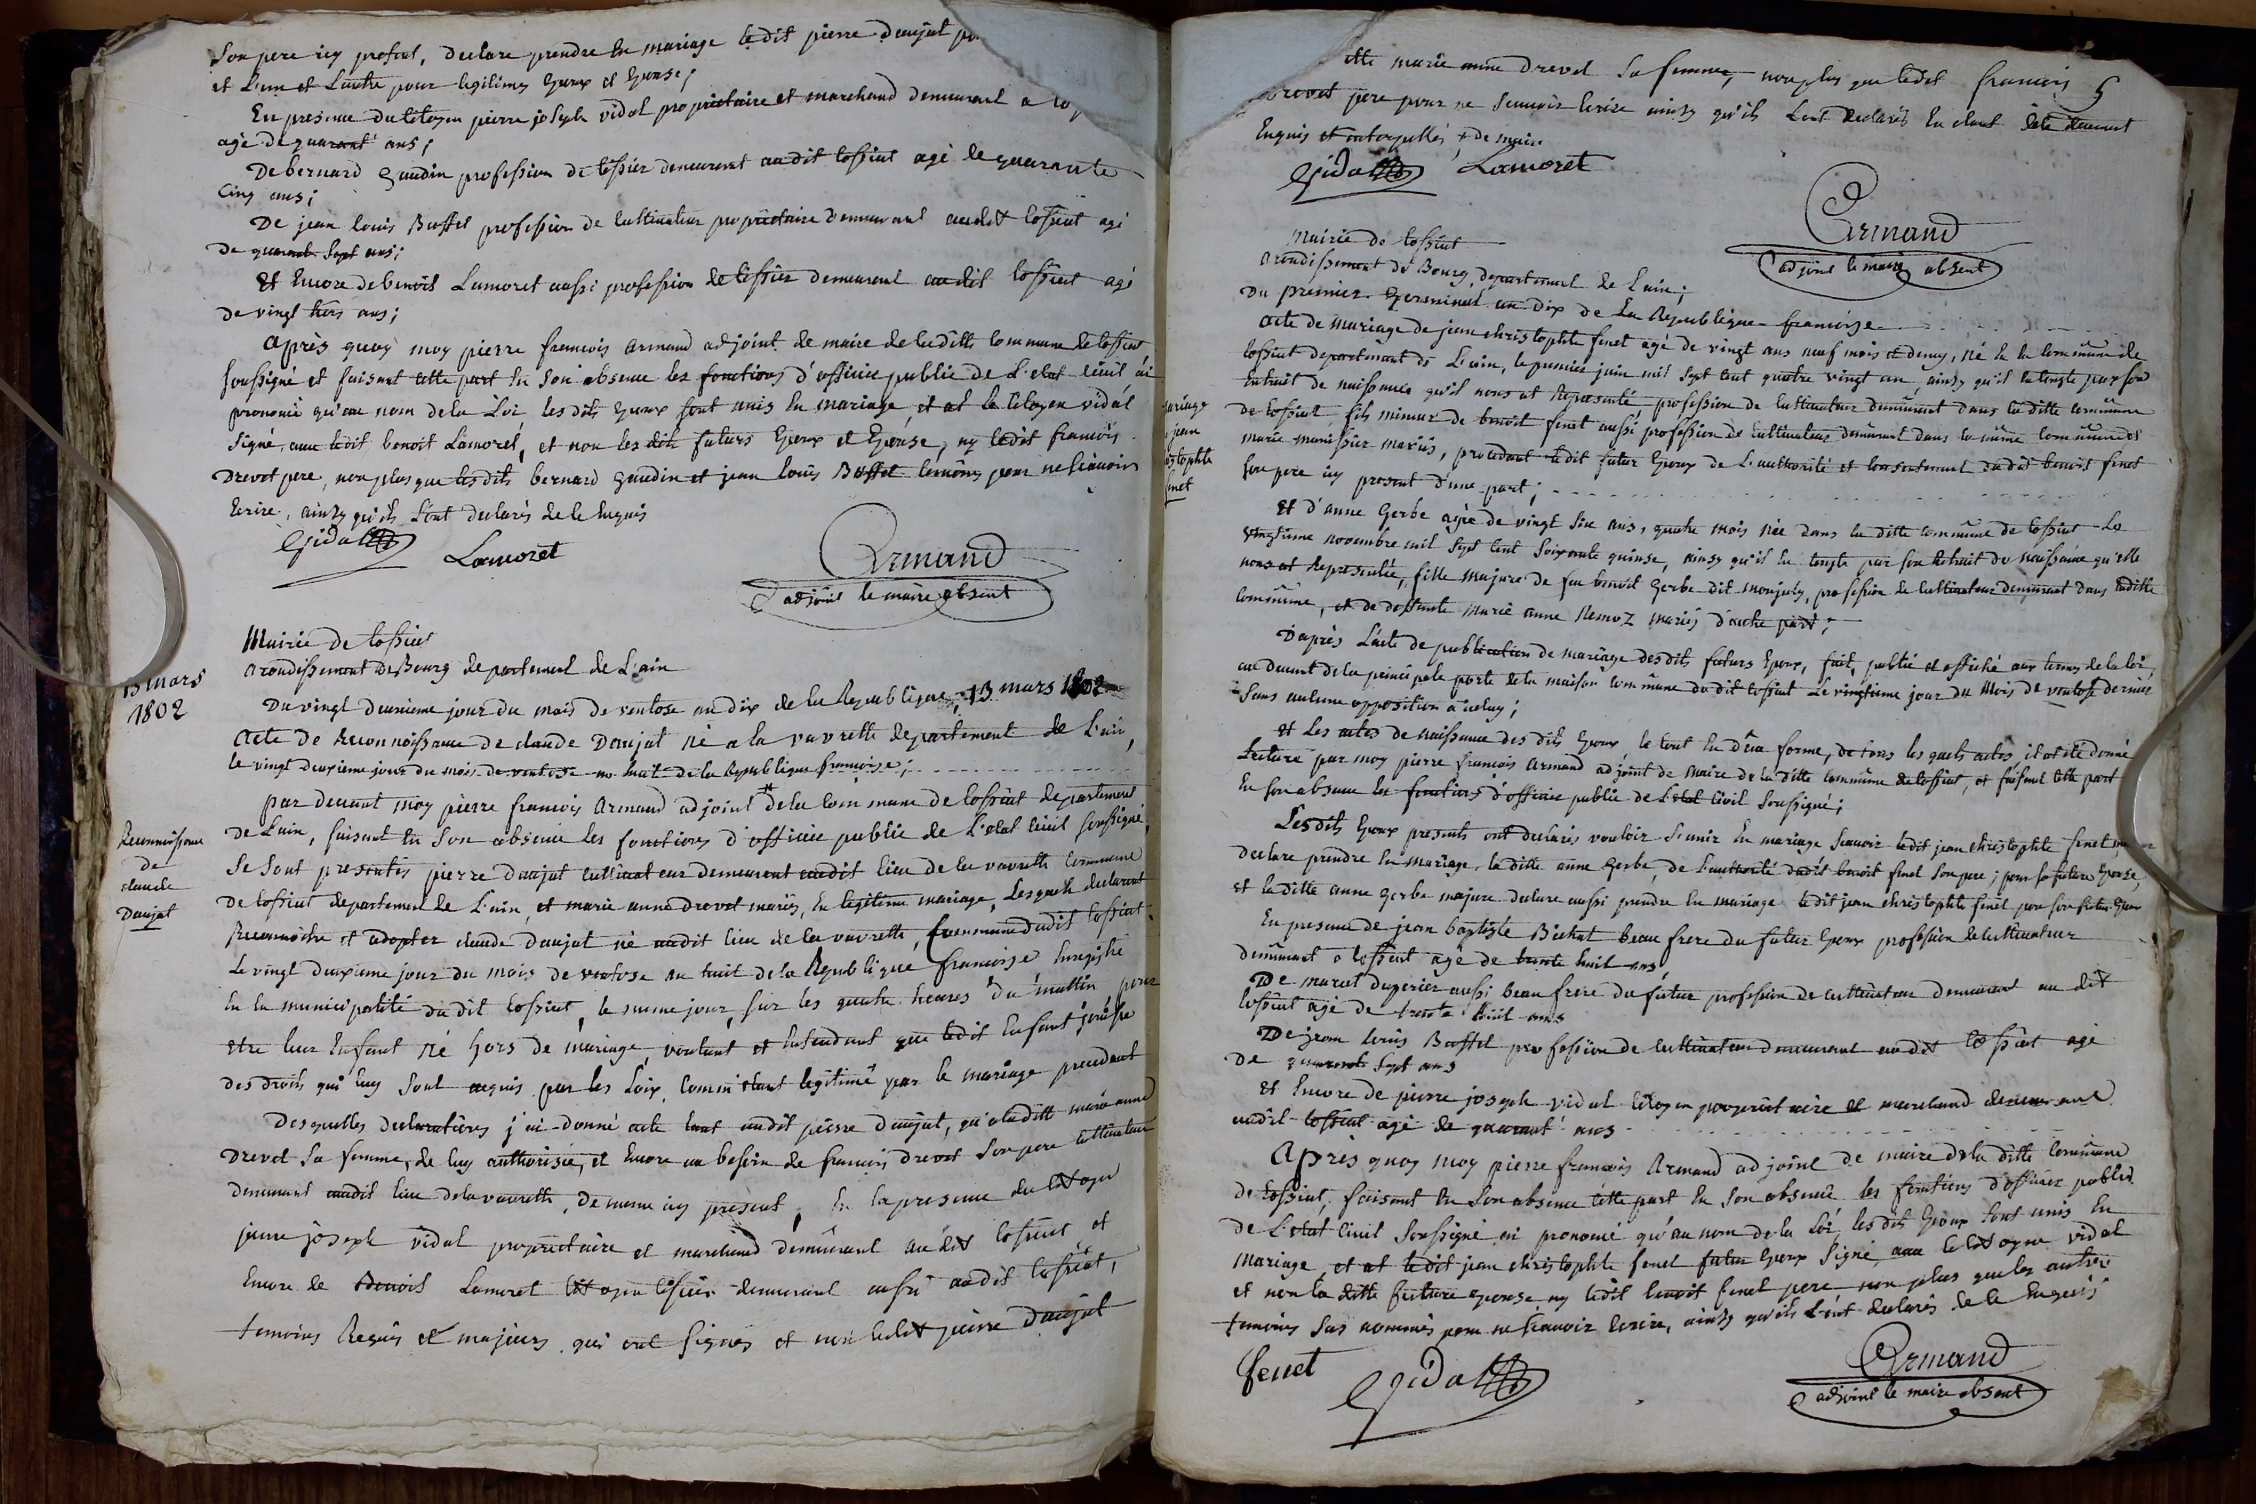 son pere icy present, declare prendre en mariage ledit pierre daujat
et l'un et l'autre pour legitimes epoux et epouse;
En presence du citoyen pierre joseph vidal proprietaire et marchand demeurant a
agé de quarant' ans;
De bernard gaudin profession de tissier demeurant audit tossiat agé de quarante
cinq ans;
De jean louis Buffet profession de cultivateur proprietaire demeurant audit tossiat agé
de quarante sept ans;
Et encore de benoit Lamoret aussi profession de tissier demeurant audit tossiat agé
de vingt trois ans;
Après quoy moy pierre francois armand adjoint de maire de la ditte commune de tossiat
soussigné et faisant cette part en son absence les fonctions d'officier public de L'etat civil ai
prononcé qu'au nom de la Loi les dits epoux sont unis en mariage et at le citoyen vidal
signé, avec ledit benoit Lamoret, et non les dits futurs epoux et epouse, ny ledit francois
Drevet pere, non plus que lesdits bernard gaudin et jean louis Buffet temoins pour ne scavoir
ecrire, ainsy qu'ils L'ont declarés de ce enquis
Vidal
Lamoret
Armand
adjoint le maire absent
Mairie de tossiat
arondissement De Bourg departement de L'ain
13 mars
1802
Du vingt deuxieme jour du mois de ventose an dix de la Republique, 13 mars 1802
Acte de Reconnoissance de claude Daujat né a la vavrette departement de L'ain,
le vingt deuxieme jour du mois de ventose an huit de la Republique francoise;
Reconnoissance
de
claude
Daujat
par devant moy pierre francois armand adjoint de la commune de tossiat departement
de L'ain, faisant en son absence les fonctions d'officier public de L'etat civil soussigné,
se sont presentés pierre daujat cultivateur demeurant audit lieu de la vavrette commune
de tossiat departement de L'ain, et marie anne drevet mariés, en legitime mariage, Lesquels declarent
Reconnoitre et adopter claude daujat né audit lieu de la vavrette, commune dudit tossiat
Le vingt deuxieme jour du mois de ventose an huit de la Republique francoise Enregistré
en la municipalité dudit tossiat, le meme jour, sur les quatre heures du mattin pour
etre leur enfant né hors de mariage, voulant et entendant que ledit enfant jouisse
des droits qui luy sont acquis par les Loix, comme etant legitimé par le mariage precedent
Desquelles declarations j'ai donné acte tant audit pierre daujat, qu'a laditte marie anne
Drevet sa femme, de luy authorisée, et encore au besoin de francois drevet son pere cultivateur
demeurant audit lieu de la vavrette, de meme icy present, en la presence du citoyen
pierre joseph vidal proprietaire et marchand demeurant audit tossiat, et
encore de Benoit Lamoret citoyen tissier demeurant aussi audit tossiat,
temoins Requis et majeurs qui ont signés et non ledit pierre Daujat
ditte marie anne drevet sa femme, non plus que ledit francois
Drevet pere pour ne scavoir ecrire ainsy qu'ils L'ont declarés
Enquis et interpellés, de maire
Vidal
Lamoret
Armand
adjoint le maire absent
Mairie de tossiat
arondissement de Bourg, departement de L'ain;
Du premier germinal an dix de La Republique francoise
mariage
jean
christophle
fenet
Acte de mariage de jean christophle fenet agé de vingt ans neuf mois et demy, né en la commune de
tossiat departement de L'ain, le premier juin mil sept cent quatre vingt un, ainsy qu'il conste par son
extrait de naissance qu'il nous at Representé, profession de cultivateur demeurant dans la ditte commune
de tossiat, fils mineur de benoit fenet aussi profession de cultivateur demeurant dans la même commune et
marie manissier mariés, procedant ledit futur epoux de L'authorité et consentement dudit benoit fenet
son pere icy present d'une part;
Et d'anne gerbe agée de vingt six ans, quatre mois née dans la ditte commune de tossiat Le
vingtieme novembre mil sept cent soixante quinse, ainsy qu'il en conste par son Extrait de naissance qu'elle
nous at Representée, fille majure de feu benoit gerbe dit monjuly, profession de cultivateur demeurant dans laditte
commune, et de deffunte marie anne Remoz mariés d'autre part;
D'après L'acte de publication de mariage desdits futurs epoux, fait, publié et affiché aux termes de la loi,
au devant de la principale porte de la maison commune du dit tossiat Le vingtieme jour du mois de ventose dernier
sans aucune opposition a icelui;
et Les actes de naissance des dits epoux, le tout en dûe forme, de tous les quels actes il at été donné
Lecture par moy pierre francois armand adjoint de maire de la ditte commune de tossiat, et faisant cette part
En son absence les fonctions d'officier public de L'etat civil soussigné;
Lesdits epoux presents ont declarés vouloir s'unir en mariage scavoir ledit jean christophle fenet mineur
declare prendre en mariage la ditte anne gerbe, de L'authorité dudit benoit fenet son pere; pour sa future epouse,
et la ditte anne gerbe majure declare aussi prendre en mariage ledit jean christophle fenet pour son futur epoux
En presence de jean baptiste Bichat beau frere du futur epoux profession de cultivateur
demeurant a tossiat agé de trente huit ans
De marcel duperier aussi beau frere du futur profession de cultivateur demeurant au dit
tossiat agé de trente huit ans
De jean louis Buffet profession de cultivateur demeurant audit tossiat agé
De quarante sept ans
Et encore de pierre joseph vidal citoyen proprietaire et marchand demeurant
audit tossiat agé de quarant' ans
Après quoy moy pierre francois armand adjoint de maire de la ditte commune
de tossiat, faisant en son absence cette part en son absence les fonctions d'officier public
de L'etat civil soussigné ai prononcé qu'au nom de la Loi, les dits epoux sont unis en
mariage, et at ledit jean christophle fenet futur epoux signé, avec le citoyen vidal
et non la ditte future epouse ny ledit benoit fenet pere non plus que les autres
temoins sus nommés pour ne scavoir ecrire, ainsy qu'ils L'ont declarés de ce enquis
fenet
Vidal
Armand
adjoint le maire absent